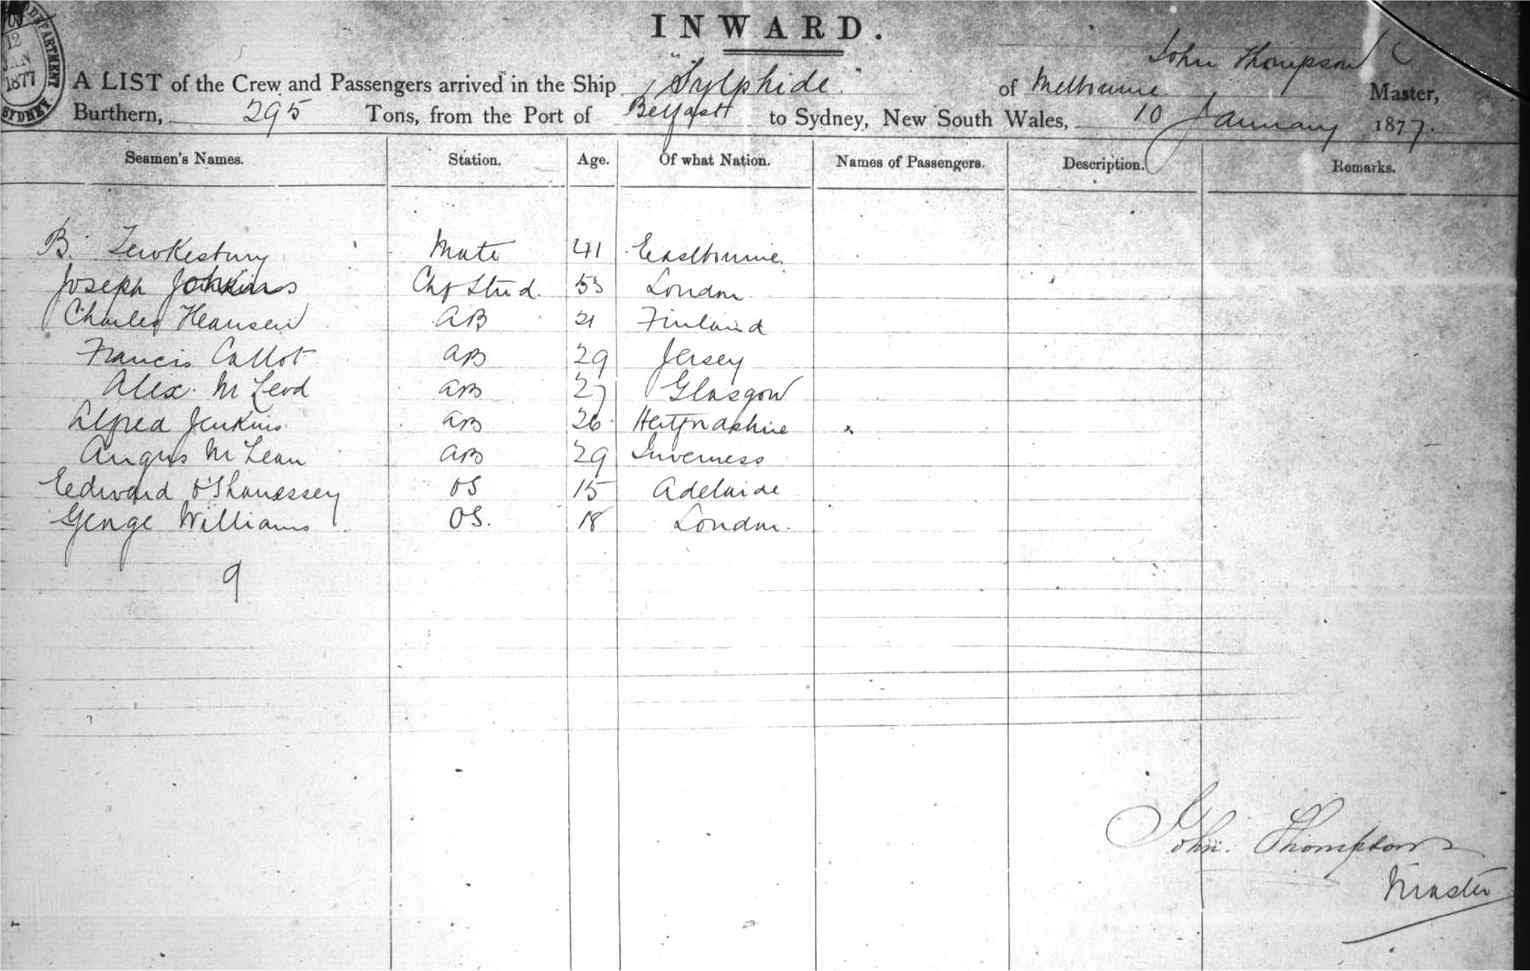 DEPARTMENT
12
JAN
1877
SYDNEY
INWARD.
John Thompson
A LIST of the Crew and Passengers arrived in the Ship "Sylphide" of Melbourne Master,
Burthern, 295 Tons, from the Port of Belfast to Sydney, New South Wales, 10 January 1877.
Seamen's Names. Station. Age. Of what Nation. Names of Passengers. Description. Remarks.
B. Tewkesbury Mate 41 Eastbourne
Joseph Stud. London
Charles Heansen AB 21 Finland
Francis Callot AB 29 Jersey
Alex. McLeod AB 27 Glasgow
Alfred Jenkins AB 26 Hertfordshire
Angus McLean AB 29 Inverness
Edward O'Shanessey OS 15 Adelaide
George Williams OS. 18 London
9
John Thompson
Master